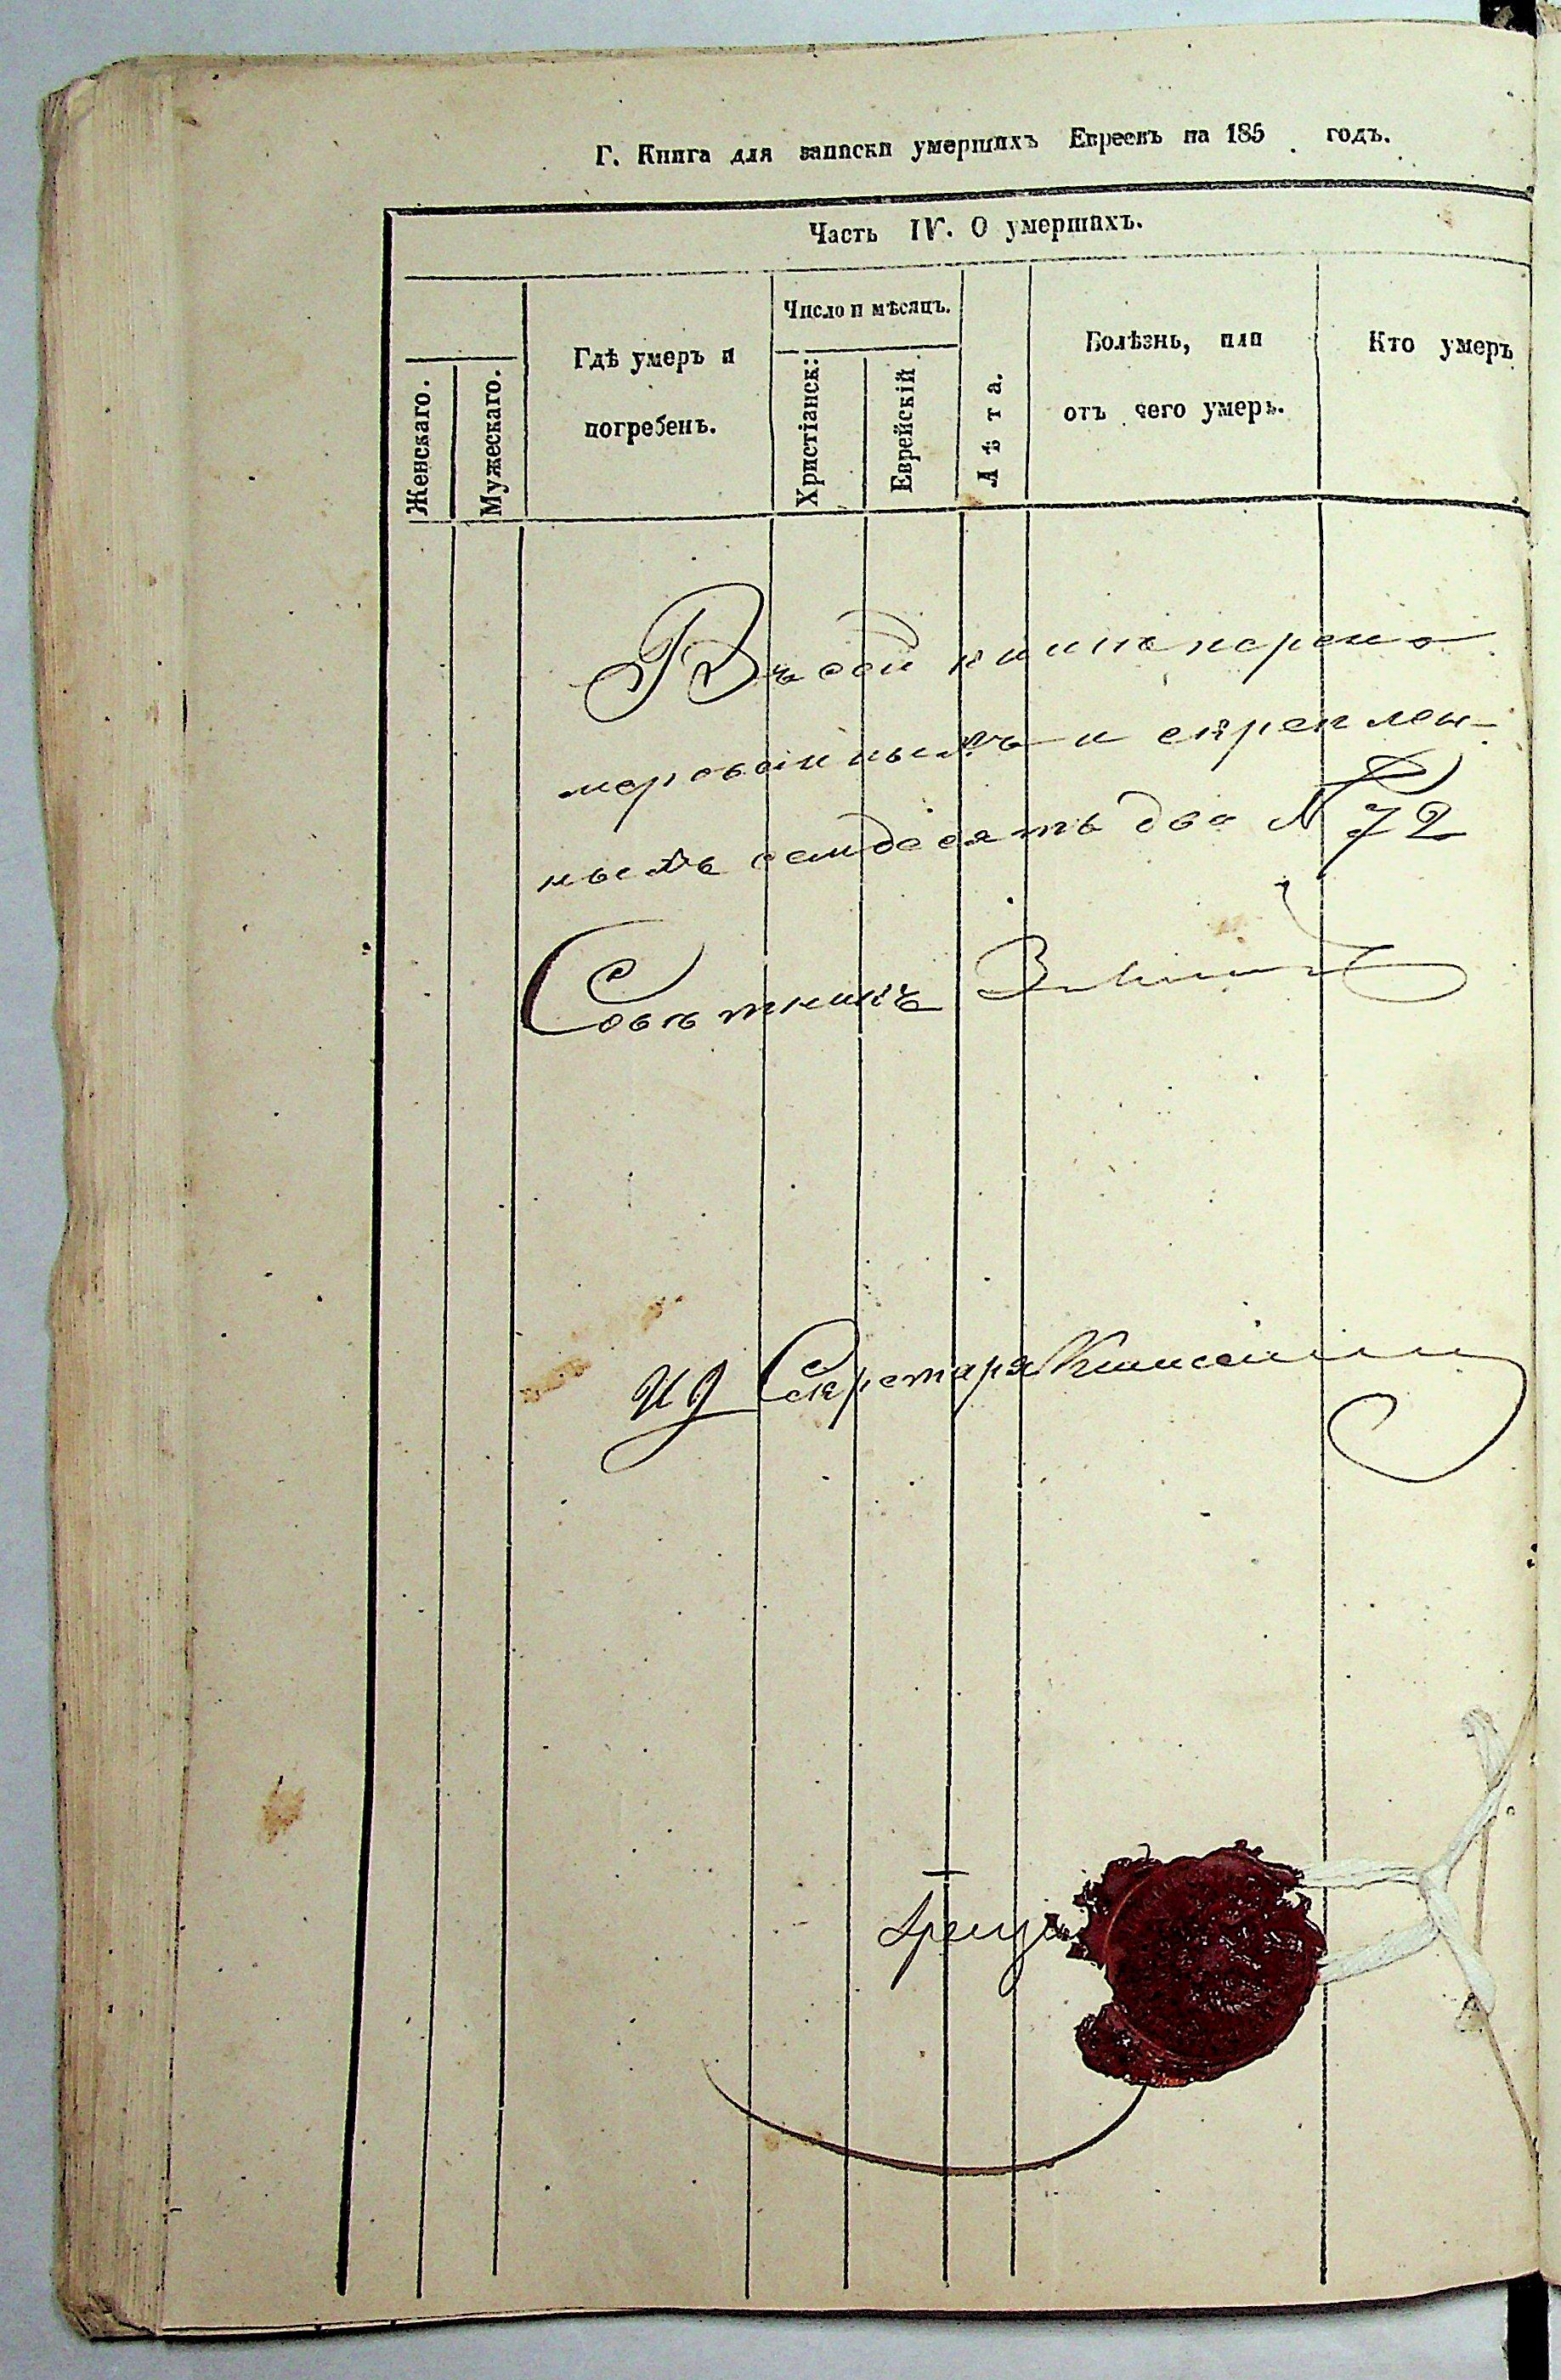 Г. Книга для записки умершихъ Евреевъ на 185 годъ.
Часть IV. О умершихъ.
Женскаго.
Мужескаго.
Гдѣ умеръ и
погребенъ.
Число и мѣсяцъ.
Христіанск:
Еврейскій
Лѣта.
Болѣзнь, или
отъ чего умеръ.
Кто умеръ
Въ сей книгѣ перено
мерованныхъ и скреплен-
ныхъ семдесятъ два № 72
Совѣтникъ
ИД Секретаря